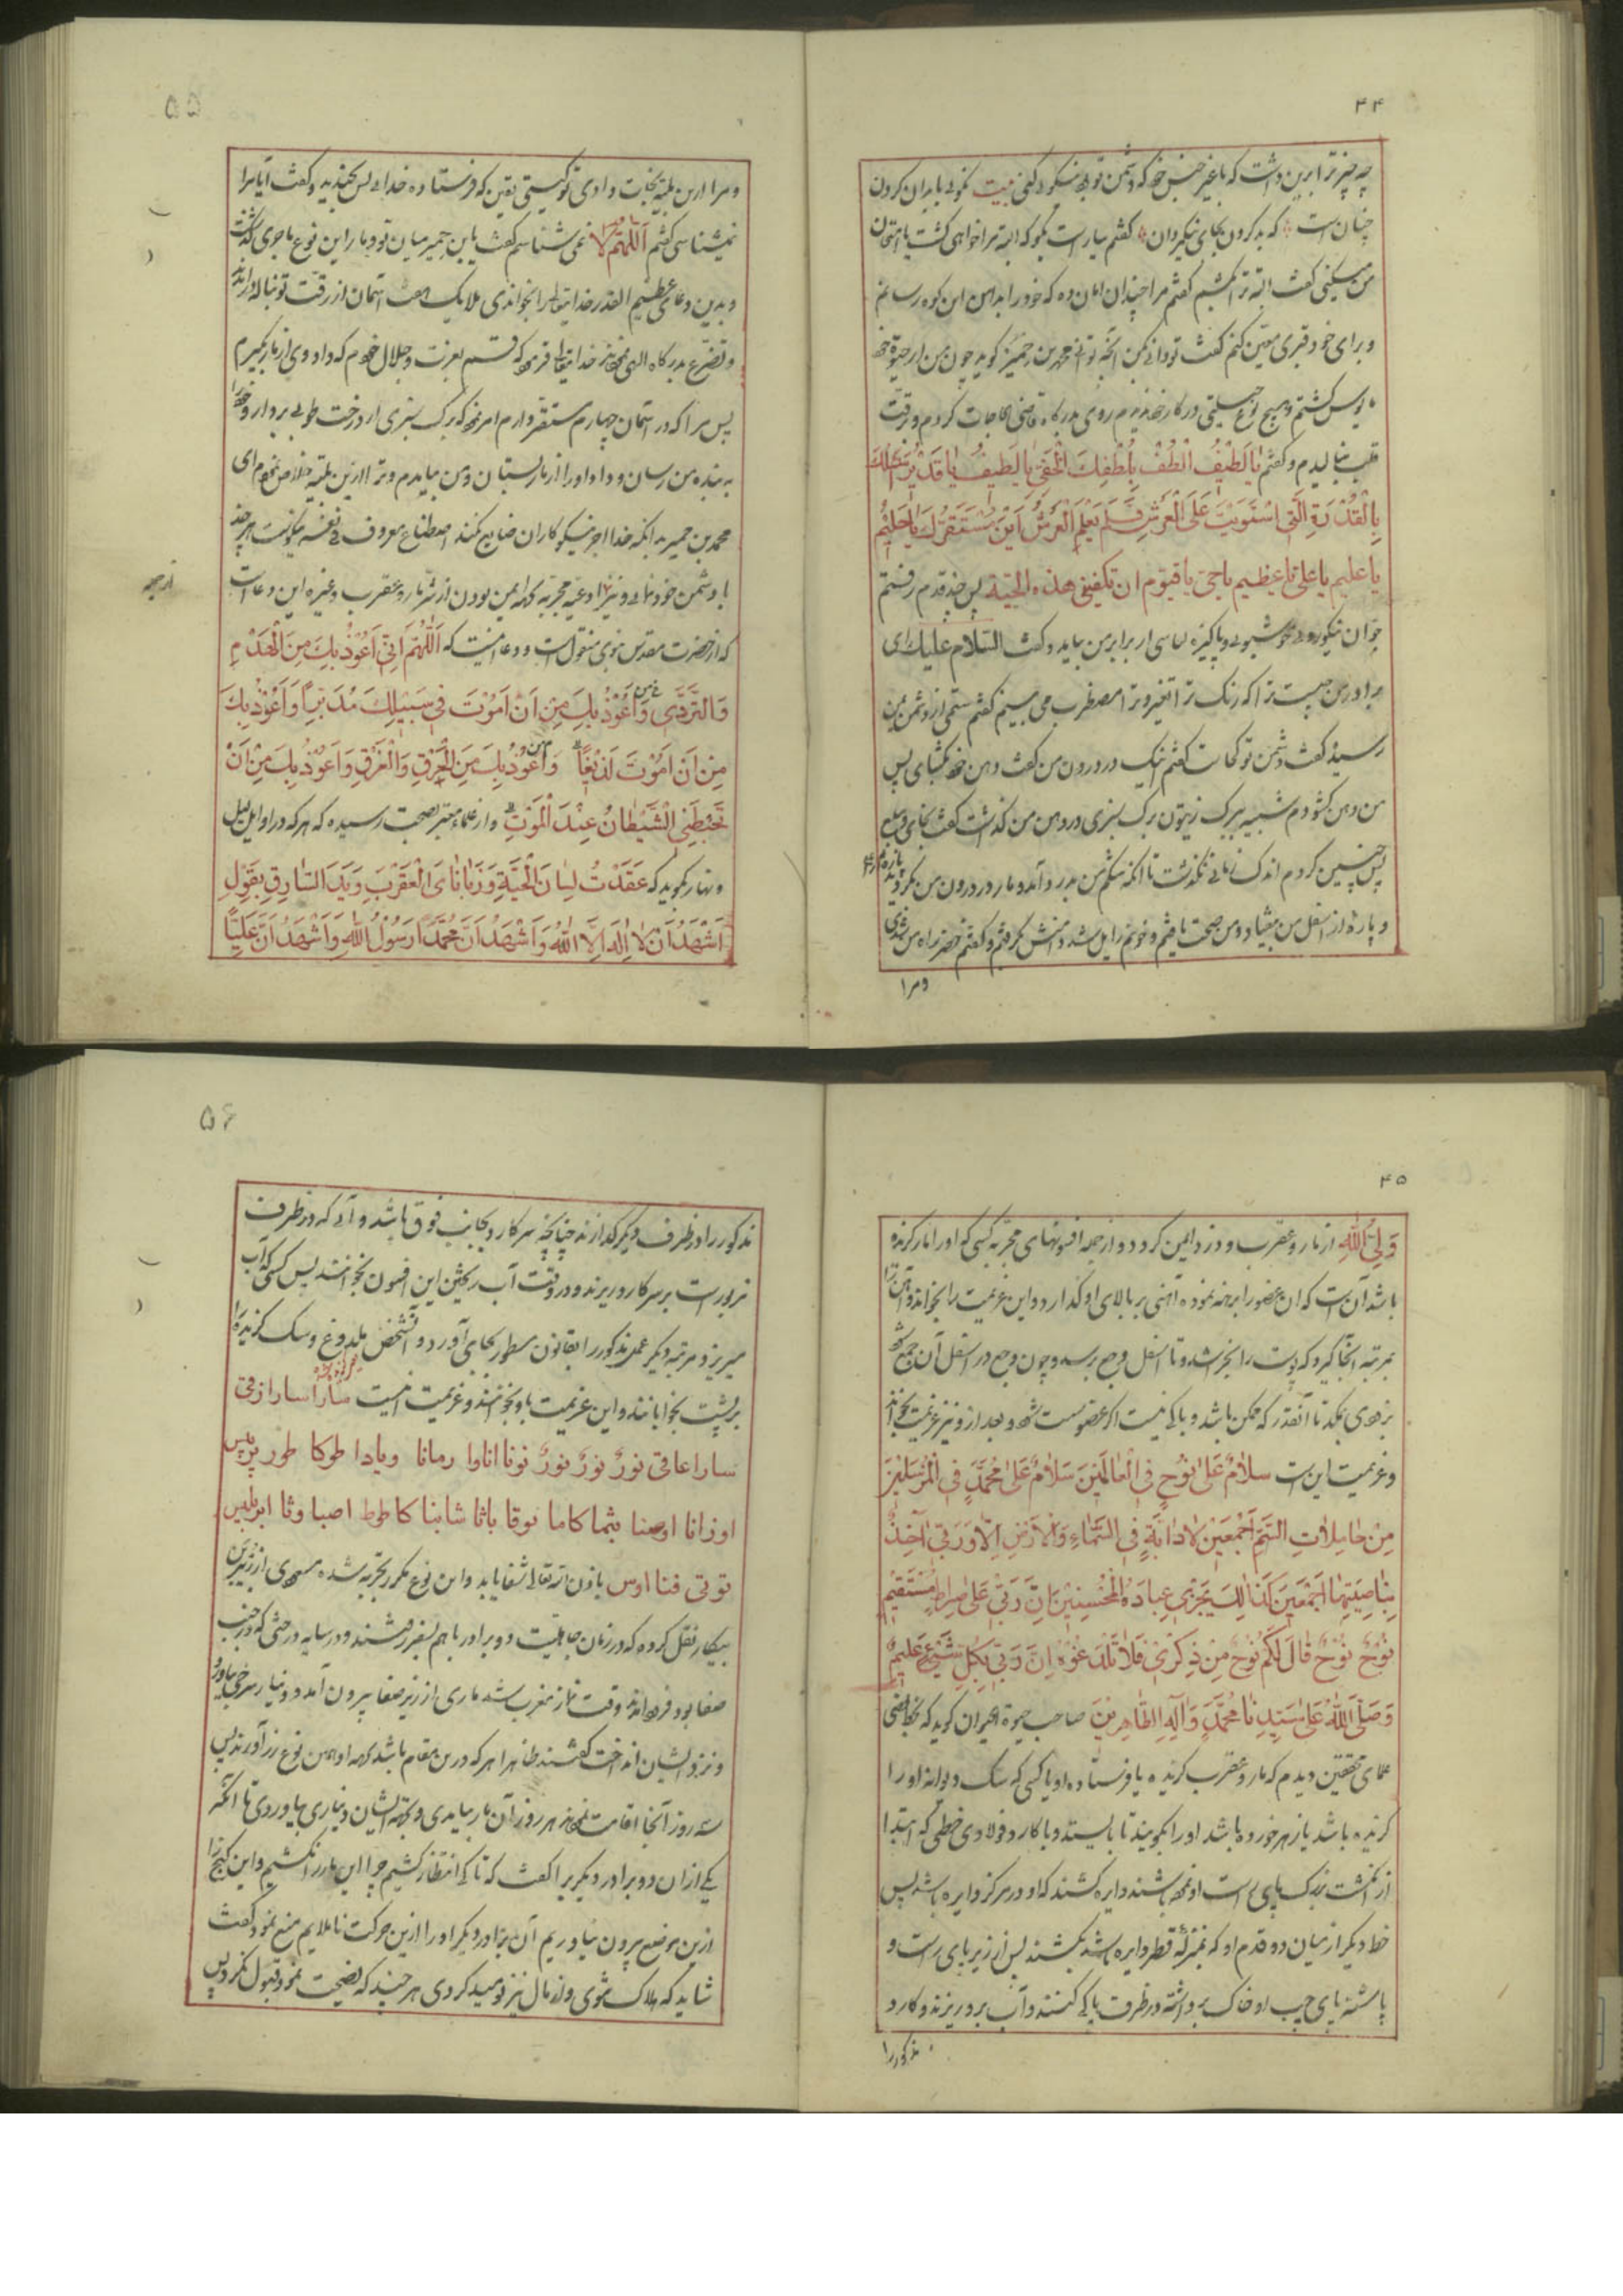 ۴۴
چه چیز ترا برین داشت که با غیر جنس خود که دشمن تو بود نیکوئی کنی بیت نکوئی با بدان کردن
چنان است که بد کردن بجای نیکمردان گفتم بسیار است بگو که البته مرا خواهی کشت یا امتحان
من میکنی گفت البته ترا میکشم گفتم مرا چندان امان ده که خود را بدامن این کوه رسانم
و برای خود قبری معین کنم گفت تو دانی بکن آنچه توانی محمد بن حمیر گوید چون من از حیوة خود
مایوس گشتم و هیچ نوع حیلتی در کار خود ندیدم روی بدرگاه قاضی الحاجات کردم و برقت
قلب بنالیدم و گفتم یا لَطیفُ الْطُفْ بِلُطْفِكَ الْخَفِیّ یا لَطیفُ یا قَدیرُ اَسْئَلُكَ
بِالْقُدْرَةِ الَّتی اسْتَوَیْتَ عَلَی الْعَرْشِ فَلَمْ یَعْلَمِ الْعَرْشُ اَیْنَ مُسْتَقَرُّكَ یا حَلیمُ
یا علیم یا علی یا عظیم یا حی یا قیوم ان تکفینی هذه الحیة پس چند قدم رفتم
جوان نیکوروی خوشبوی و پاکیزه لباسی از برابر من بیامد و گفت السلام علیك ای
برادر من چیست ترا که رنگ ترا متغیر و ترا مضطرب می بینم گفتم ستمی از دشمن بمن
رسید گفت دشمن تو کجاست گفتم اینک در درون من گفت دهن خود بگشای پس
من دهن گشودم شبیه ببرک زیتون برک سبزی در دهن من گذاشت گفت بخای و ببلع
پس چنین کردم اندک زمانی نگذشت تا آنکه شکم من بدرد آمد و مار در درون من بگردید
و پاره از اسفل من بیفتاد و من صحت یافتم و خوفم زایل شد دامنش گرفتم و گفتم خضر راه من شدی
و مرا
۵۵
و مرا ازین بلیه نجات دادی تو کیستی یقین که فرستاده خدائی پس بخندید و گفت آیا مرا
نمیشناسی گفتم اللهم لا نمی شناسم گفت یا بن حمیر میان تو و مار این نوع ماجری گذشت
و بدین دعای عظیم القدر خدایتعالی را بخواندی ملایک هفت آسمان از رقت تو بناله درآمدند
و تضرع بدرگاه الهی نمودند خدایتعالی فرمود که قسم بعزت و جلال خودم که داد وی از مار بگیرم
پس مرا که در آسمان چهارم مستقر دارم امر نمود که برک سبزی از درخت طوبی بردار و خود را
به بنده من رسان و داد او را از مار بستان و من بیامدم و ترا ازین بلیه خلاص نمودم ای
محمد بن حمیر بدانکه خدا اجر نیکوکاران ضایع نکند اصطناع معروف فی نفسه نیکوست هر چند
با دشمن خود نمائی و نیز از ادعیه مجربه که برای ایمن بودن از شر مار و عقرب و غیره این دعاست
که از حضرت مقدس نبوی منقول است و دعا اینست که اَللّهُمَّ اِنّی اَعُوذُ بِكَ مِنَ الْهَدْمِ
وَالتَّرَدّی وَاَعُوذُ بِكَ مِنْ اَنْ اَمُوتَ فی سَبیلِكَ مُدْبِراً وَاَعُوذُ بِكَ
مِنْ اَنْ اَمُوتَ لَدیغاً وَاَعُوذُ بِكَ مِنَ الْحَرَقِ وَالْغَرَقِ وَاَعُوذُ بِكَ مِنْ اَنْ
یَتَخَبَّطَنِی الشَّیْطانُ عِنْدَ الْمَوْتِ و از علماء معتبر بصحت رسیده که هر که در اوایل لیل
و نهار بگوید که عَقَدْتُ لِسانَ الْحَیَّةِ وَزَبانَی الْعَقْرَبِ وَیَدَ السّارِقِ بِقَوْلِ
اَشْهَدُ اَنْ لا اِلهَ اِلَّا اللهُ وَاَشْهَدُ اَنَّ مُحَمَّداً رَسُولُ اللهِ وَاَشْهَدُ اَنَّ عَلِیّاً
۴۵
وَلِیُّ اللهِ از مار و عقرب و دزد ایمن گردد و از جمله افسونهای مجربه کسی که او را مار گزیده
باشد آن است که آن عضو را برهنه نموده آهنی بر بالای او گذارد و این عزیمت را بخواند و آهن را
بمرتبه آنجا گیرد که پوست را بخراشد و تا اسفل وجع برسد و چون وجع در اسفل آن جمع شود
بزودی بمکد تا آنقدر که ممکن باشد و باکی نیست اگر عضو سست شود و بعد از او نیز عزیمت بخواند
و عزیمت این است سلامٌ عَلی نُوحٍ فِی الْعالَمینَ سَلامٌ عَلی مُحَمَّدٍ فِی الْمُرْسَلینَ
مِنْ حامِلاتِ السَّمِّ اَجْمَعینَ لا دابَّةٍ فِی السَّماءِ وَالْاَرْضِ اِلّا وَرَبّی آخِذٌ
بِناصِیَتِها اَجْمَعینَ کَذلِكَ یَجْزی عِبادَهُ الْمُحْسِنینَ اِنَّ رَبّی عَلی صِراطٍ مُسْتَقیمٍ
نُوحٌ نُوحٌ قالَ لَکُمْ نُوحٌ مِنْ ذِکْری فَلا تَلْدَغُوهُ اِنَّ رَبّی بِکُلِّ شَیْئٍ عَلیمٌ
وَصَلَّی اللهُ عَلی سَیِّدِنا مُحَمَّدٍ وَآلِهِ الطّاهِرینَ صاحب حیوة الحیوان گوید که بخط بعضی
علمای محققین دیدم که مار و عقرب گزیده یا فرستاده او یا کسی که سک دیوانه او را
گزیده باشد یا زهر خورده باشد او را بگویند تا بایستد و با کارد فولادی خطی که ابتدا
از انگشت بزرک پای راست او نموده باشند دایره کشند که او در مرکز دایره باشد پس
خط دیگر از میان دو قدم او که بمنزله قطر دایره باشد بکشند پس از زیر پای راست و
پاشنه پای چپ او خاک برداشته در ظرف پاکی کنند و آب برو ریزند و کارد
مذکور را
۵۶
مذکور را در ظرف دیگر گذارند چنانچه سر کارد بجانب فوق باشد و آبی که در ظرف
مزبور است بر سر کارد ریزند و در وقت آب ریختن این افسون بخوانند پس کسی که آب
میریزد مرتبه دیگر عمل مذکور را بقانون مسطور بجای آورد و آنشخص ملدوغ و سک گزیده را
بر پشت بخوابانند و این عزیمت باو بخوانند و عزیمت اینست سارا سارا زقی
سارا عاقی نورٌ نورٌ نورٌ نونا اناوا رمانا ویادا طوکا طور
اوزانا اوصنا بثما کاما نوقا باثا شابنا کاطوط اصبا وثا
توتی فنا اوس باذن الله تعالی شفا یابد و این نوع مکرر بتجربه شده
نقل کرده که در زمان جاهلیت دو برادر با هم بسفر رفتند و در سایه درختی که در جنب
صفا بود فرود آمدند وقت نماز مغرب شد ماری از زیر صفا بیرون آمد و دینار سرخی بیاورد
و نزد ایشان انداخت گفتند ظاهرا هر که درین مقام باشد بجهة او همین نوع زر آورند پس
سه روز آنجا اقامت نمودند هر روز آن مار بیامدی و بجهة ایشان دیناری بیاوردی تا آنکه
یکی از آن دو برادر دیگریرا گفت که تا کی انتظار کشیم چرا این مار را نکشیم و این گنج را
ازین موضع بیرون نیاوریم آن برادر دیگر او را ازین حرکت ناملایم منع نمود و گفت
شاید که هلاک شوی و از مال نیز نومید گردی هر چند که نصیحت نمود قبول نکرد پس